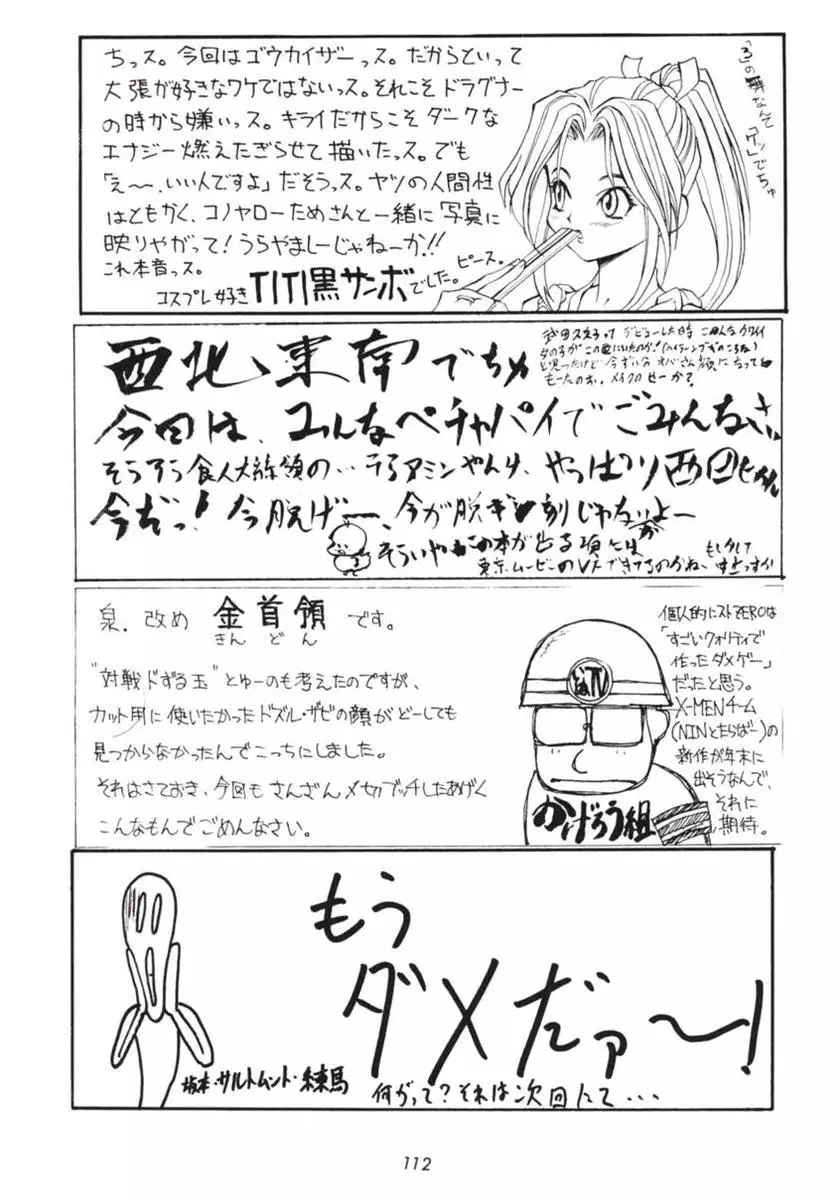 ちっス。今回はゴウカイザーっス。だからといって
大張が好きなワケではないっス。それこそドラグナー
の時から嫌いっス。キライだからこそダークな
エナジー燃えたぎらせて描いたっス。でも
「え〜、いい人ですよ」だそうっス。ヤツの人間性
はともかく、コノヤローためさんと一緒に写真に
映りやがって!うらやましーじゃねーか!!
これ本音っス。
コスプレ好き TITI黒サンボでした。ピース。
「3」の舞なんて
「ケッ」でちゅ
西北、東南でちゅ
デビューした時
今回は、みんなペチャパイでごみんなさい
そうろう食人大統領の…
やっぱり西田
今だっ!今脱げー、今が脱ぎ刻じゃないかよー
そういやこの本が出る頃には
東京ムービーのVFできてるのかねー
もしかして
泉、改め 金首領です。
きんどん
"対戦ドずる玉"とゅーのも考えたのですが、
カット用に使いたかったドズル・ザビの顔がどーしても
見つからなかったんでこっちにしました。
それはさておき、今回もさんざんメセカブッチしたあげく
こんなもんでごめんなさい。
TV
かげろう組
個人的にストZEROは
「すごいクオリティで
作ったダメゲー」
だったと思う。
X-MENチーム
(NINとたらばー)の
新作が年末に
出そうなんで、
それに
期待。
もう
ダメだァ〜!
坂本・サルトムント・練馬
何がって?それは次回にて...
112